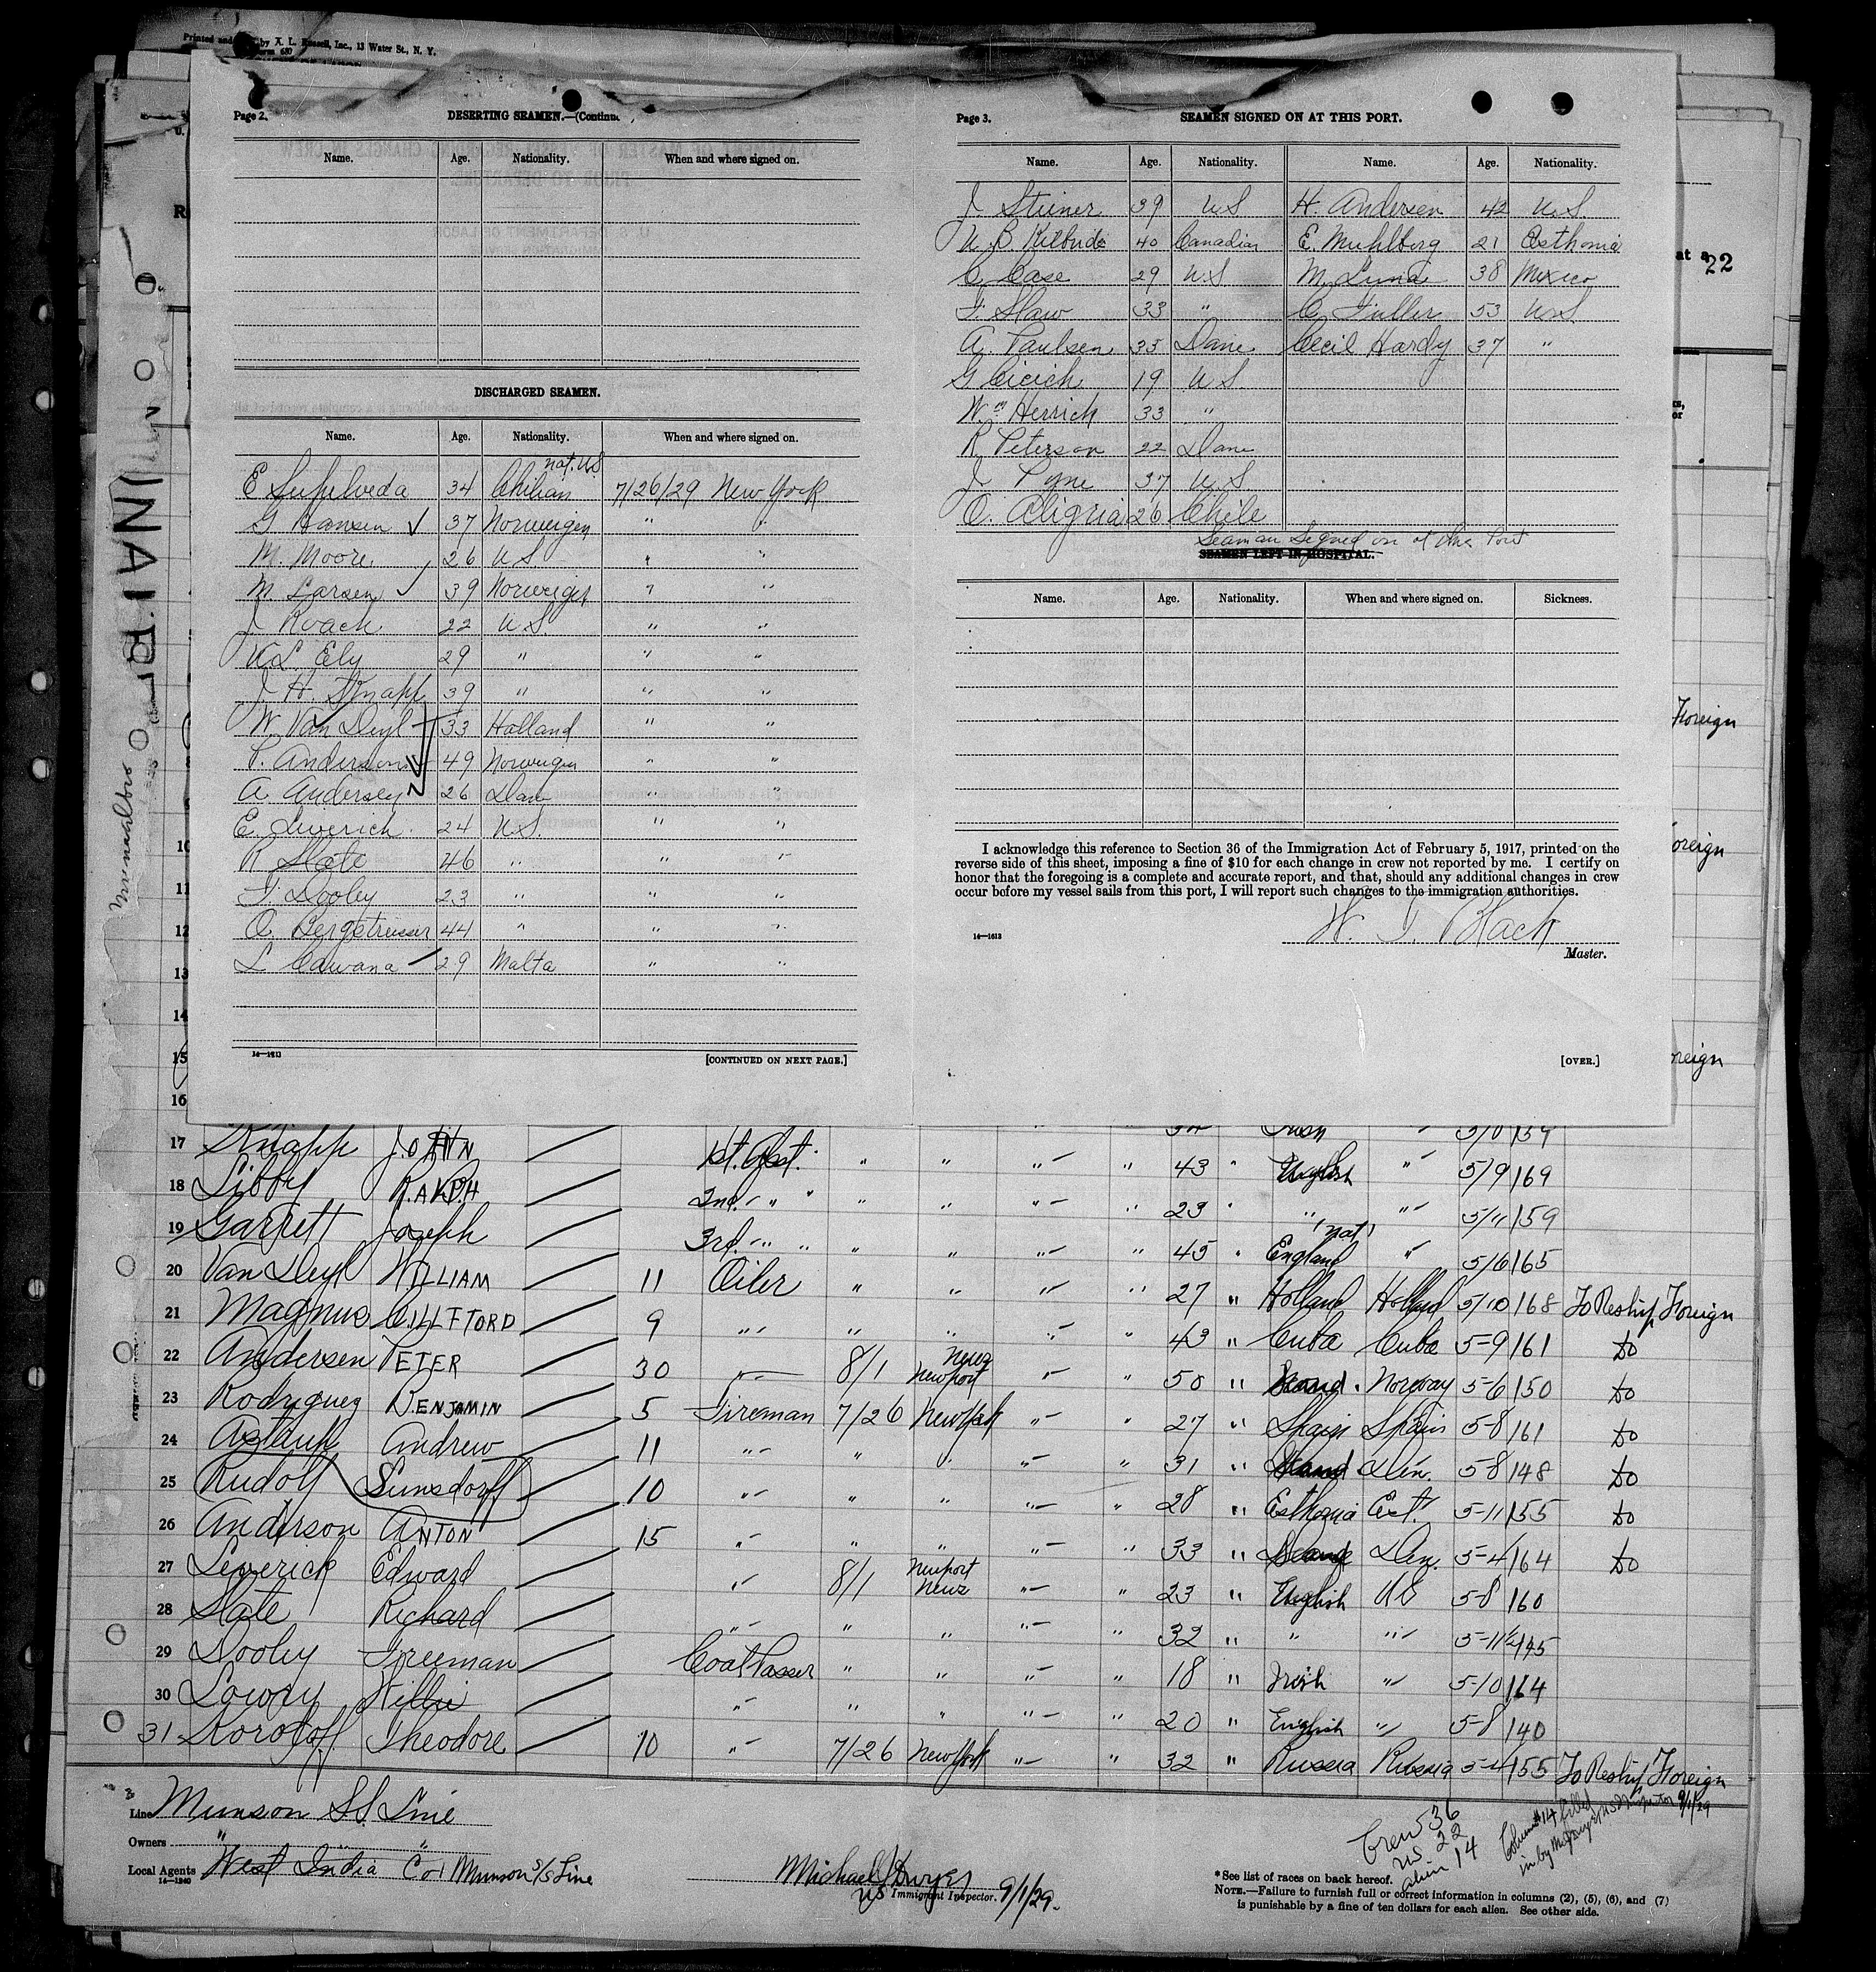 Printed and by X. L. Inc., 13 Water St., N. Y.
Form 680
Page 2. DESERTING SEAMEN.—(Continu
Name. Age. Nationality. When and where signed on.
DISCHARGED SEAMEN.
Name. Age. Nationality. When and where signed on.
nat. US
E Sepulveda 34 Chilian 7/26/29 New York
G Hansen ✓ 37 Norweigen " "
M. Moore 26 US " "
M. Larsen ✓ 39 Norweign " "
J Roach 22 U.S. " "
W L. Ely 29 " " "
J. H. Knapp 39 " " "
W. Van Deyl 33 Holland " "
P. Anderson 49 Norweigen " "
A Andersen 26 Dane " "
E. Liverich 24 U.S. " "
R Slate 46 " " "
F. Dooley 23 " " "
O. Bergetreusser 44 " " "
L Cawana 29 Malta " "
14—1613 [CONTINUED ON NEXT PAGE.]
Page 3. SEAMEN SIGNED ON AT THIS PORT.
Name. Age. Nationality. Name. Age. Nationality.
J Steiner 39 U.S H. Andersen 42 U.S.
N. B. Kilbride 40 Canadian E. Muhlberg 21 Esthonia
C Case 29 U.S M. Luna 38 Mexico
F. Shaw 33 " C Fuller 53 U.S
A. Paulsen 35 Dane Cecil Hardy 37 "
G Cicich 19 U S
Wm Herrick 33 "
R Peterson 22 Dane
J Pyne 37 U.S.
O. Aligria 26 Chile
Seaman Signed on at this Port
SEAMEN LEFT IN HOSPITAL.
Name. Age. Nationality. When and where signed on. Sickness.
I acknowledge this reference to Section 36 of the Immigration Act of February 5, 1917, printed on the
reverse side of this sheet, imposing a fine of $10 for each change in crew not reported by me. I certify on
honor that the foregoing is a complete and accurate report, and that, should any additional changes in crew
occur before my vessel sails from this port, I will report such changes to the immigration authorities.
W. J. Black
14—1613 Master.
[OVER.]
at a 22
Foreign
oreign
oreign
10
11
12
13
14
15
16
17 Knapp JOHN 1st. Asst. " " " " 43 " English " 5/9 169
18 Libby RALPH 2nd " " " " " " 23 " " " 5/11 159
19 Garrett Joseph 3rd " " " " " " 45 " England (nat) " 5/6 165
20 Van Deyl WILLIAM 11 Oiler " " " " 27 " Holland Holland 5/10 168 To Reship Foreign
21 Magnus CILLFTORD 9 " " " " " 43 " Cuba Cuba 5-9 161 Do
22 Andersen PETER 30 " 8/1 Newport News " " 50 " Scand. Norway 5-6 150 Do
23 Rodriguez BENJAMIN 5 Fireman 7/26 New York " " 27 " Spain Spain 5-8 161 Do
24 Andrew 11 " " " " " 31 " Scand Den. 5-8 148 Do
25 Rudolf Sunsdorff 10 " " " " " 28 " Esthonia Est. 5-11 155 Do
26 Anderson ANTON 15 " " " " " 33 " Scand Den. 5-4 164 Do
27 Leverick Edward " 8/1 Newport News " " 23 " English US 5-8 160
28 Slate Richard " " " " 32 " " " 5-11½ 145
29 Dooley Freeman Coal Passer " " " " 18 " Irish " 5-10 164
30 Lowry Willie " " " " " 20 " English " 5-8 140
31 Korotoff Theodore 10 " 7/26 New York " " 32 " Russia Russia 5-4 155 To Reship Foreign
Line Munson S.S. Line
Owners "
Local Agents West India Co. Munson S/S Line
14—1240
Michael J Dwyer
US Immigrant Inspector. 9/1/29.
Crew 36
US 22
alien 14
Column #14 filled
in by US Inspector 9/1/29
* See list of races on back hereof.
NOTE.—Failure to furnish full or correct information in columns (2), (5), (6), and (7)
is punishable by a fine of ten dollars for each alien. See other side.